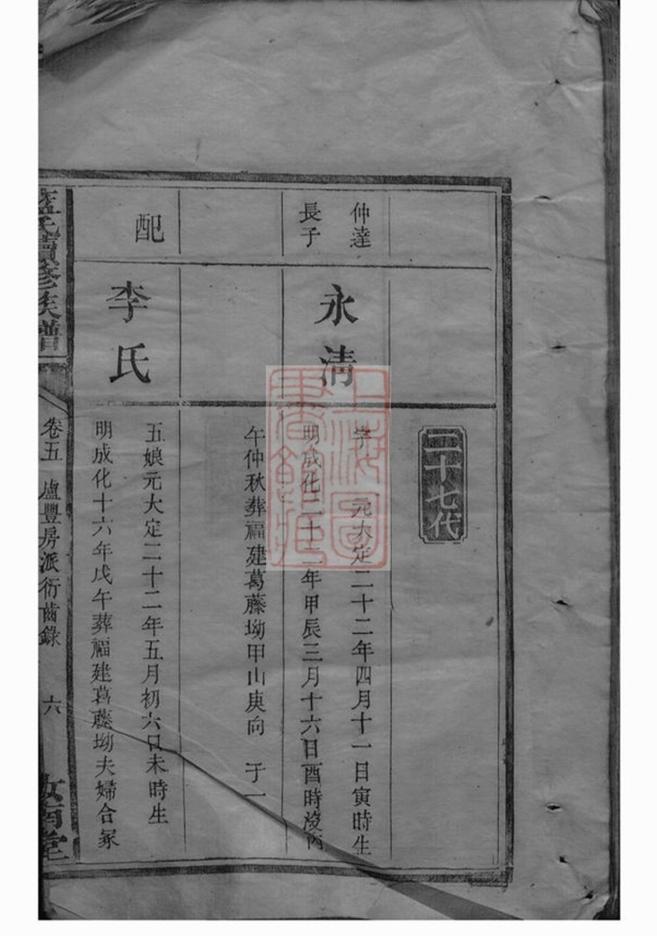 二十七代
仲達
長子
永清
字　元大定二十二年四月十一日寅時生
明成化二十二年甲辰三月十六日酉時没丙
午仲秋葬福建葛藤坳甲山庚向　子一
配
李氏
五娘元大定二十二年五月初六日未時生
明成化十六年戊午葬福建葛藤坳夫婦合冢
藍氏續修族譜
卷五　盧豐房派衍齒錄　六
汝南堂
上海圖
書館藏